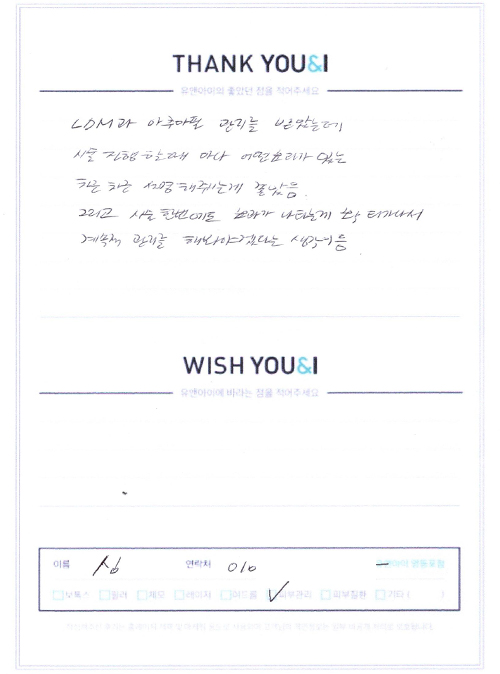 THANK YOU&I
유앤아이의 좋았던 점을 적어주세요
LDM과 아쿠아필 관리를 받았는데
시술 진행 할때 마다 어떤효과가 있는
차근 차근 설명해주시는게 좋았음.
그리고 시술 한번에도 효과가 나타는게 확 티가나서
계속적 관리를 해봐야겠다는 생각이듬
WISH YOU&I
유앤아이에 바라는 점을 적어주세요
이름 심 연락처 010
보톡스 필러 제모 레이저 여드름 피부관리 피부질환 기타 ( )